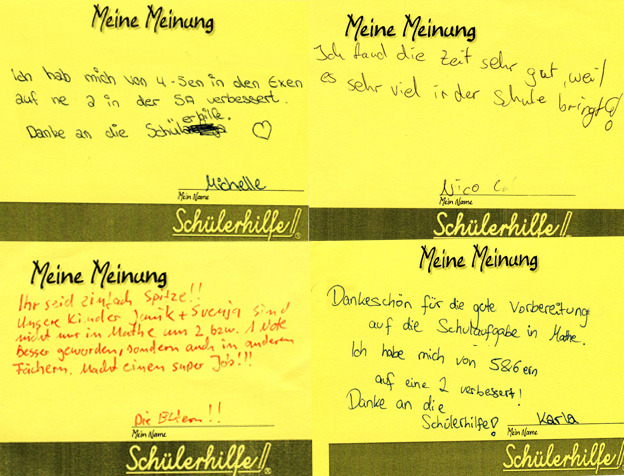 Meine Meinung
Ich hab mich von 4-5en in den Exen
auf ne 2 in der SA verbessert.
Danke an die Schülerhilfe. ♡
Michelle
Mein Name
Schülerhilfe!
Meine Meinung
Ich fand die Zeit sehr gut, weil
es sehr viel in der Schule bringt!
Nico
Mein Name
Schülerhilfe!
Meine Meinung
Ihr seid einfach Spitze!!
Unsere Kinder Janik + Svenja sind
nicht nur in Mathe um 2 bzw. 1 Note
besser geworden, sondern auch in anderen
Fächern. Macht einen super Job!!!
Die Eltern!!
Mein Name
Schülerhilfe!
Meine Meinung
Dankeschön für die gute Vorbereitung
auf die Schulaufgabe in Mathe.
Ich habe mich von 5&6ern
auf eine 2 verbessert!
Danke an die
Schülerhilfe!
Karla
Mein Name
Schülerhilfe!